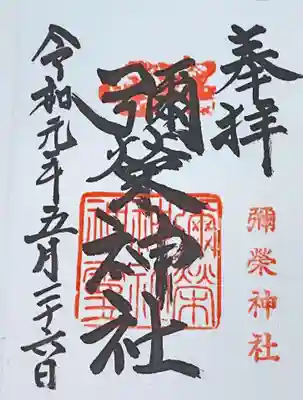 奉拝
彌榮神社
彌榮神社
令和元年五月二十六日